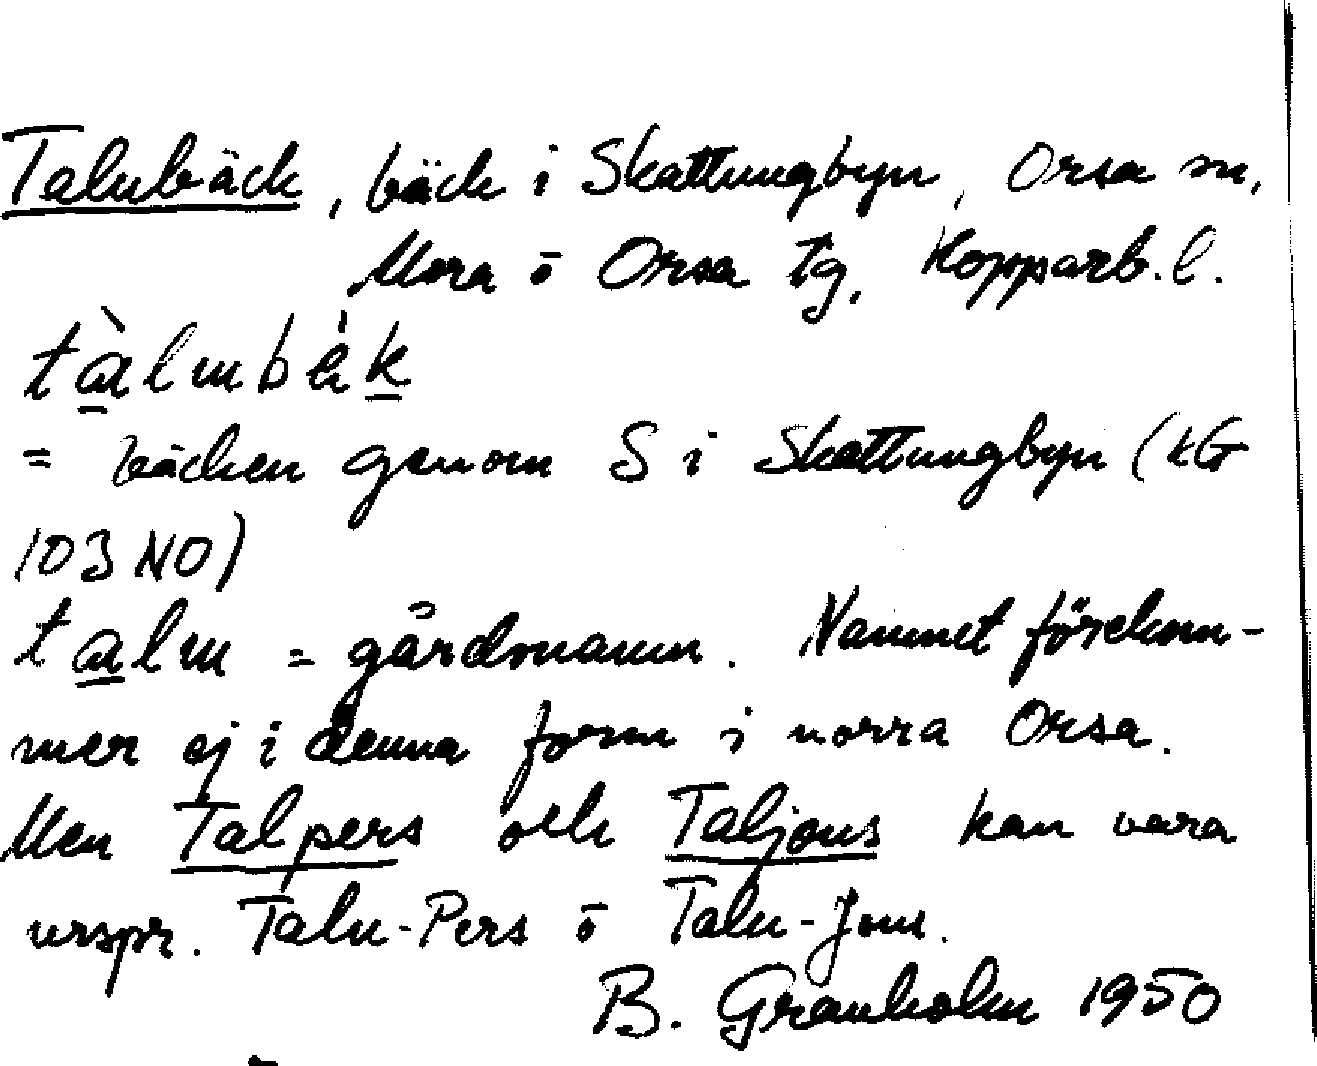 Talubäck, bäck i Skattungbyn, Orsa sn,
Mora ō Orsa tg. Kopparb. l.
tàlɯbèk
= bäcken genom S i Skattungbyn (kG
103 NO)
talɯ = gårdmann. Namnet förekom-
mer ej i denna form i norra Orsa.
Men Talpers och Taljons kan vara
urspr. Talu-Pers ō Talu-Jons.
B. Granholm 1950